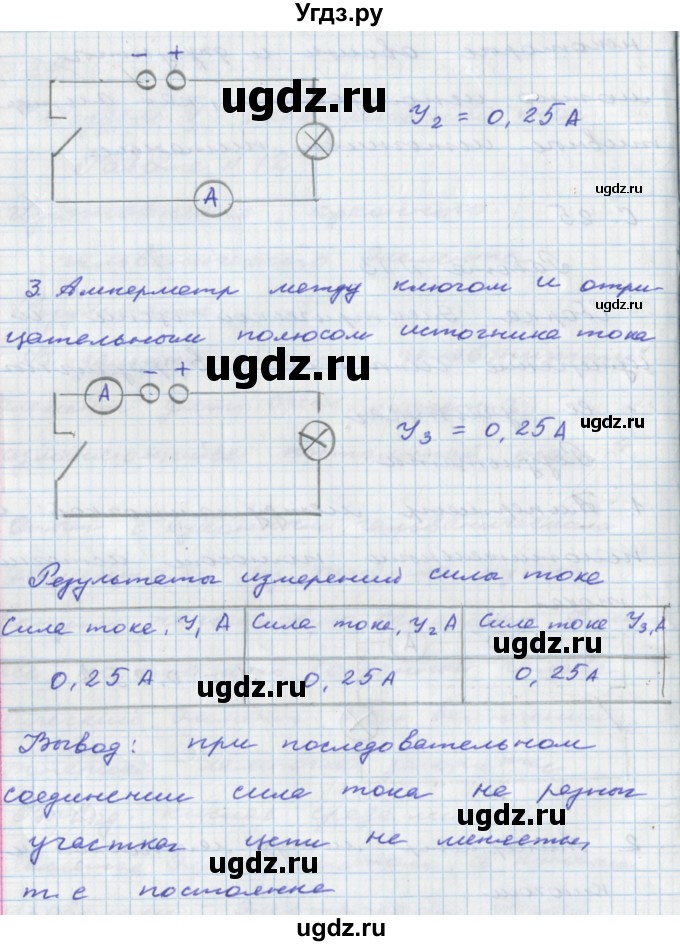 Угдз.ру
- +
ugdz.ru
У2 = 0,25 А
ugdz.ru
А
ugdz.ru
3. Амперметр между ключом и отри
цательным полюсом источника тока
ugdz.ru
А - +
ugdz.ru
У3 = 0,25А
Результаты измерений силы тока
Сила тока, У1 А Сила тока, У2 А Сила тока У3, А
ugdz.ru
0,25 А 0,25 А 0,25 А
ugdz.ru
Вывод: при последовательном
соединении сила тока на разных
ugdz.ru
участках цепи не меняеться,
ugdz.ru
т. е постоянна
©ugdz.ru